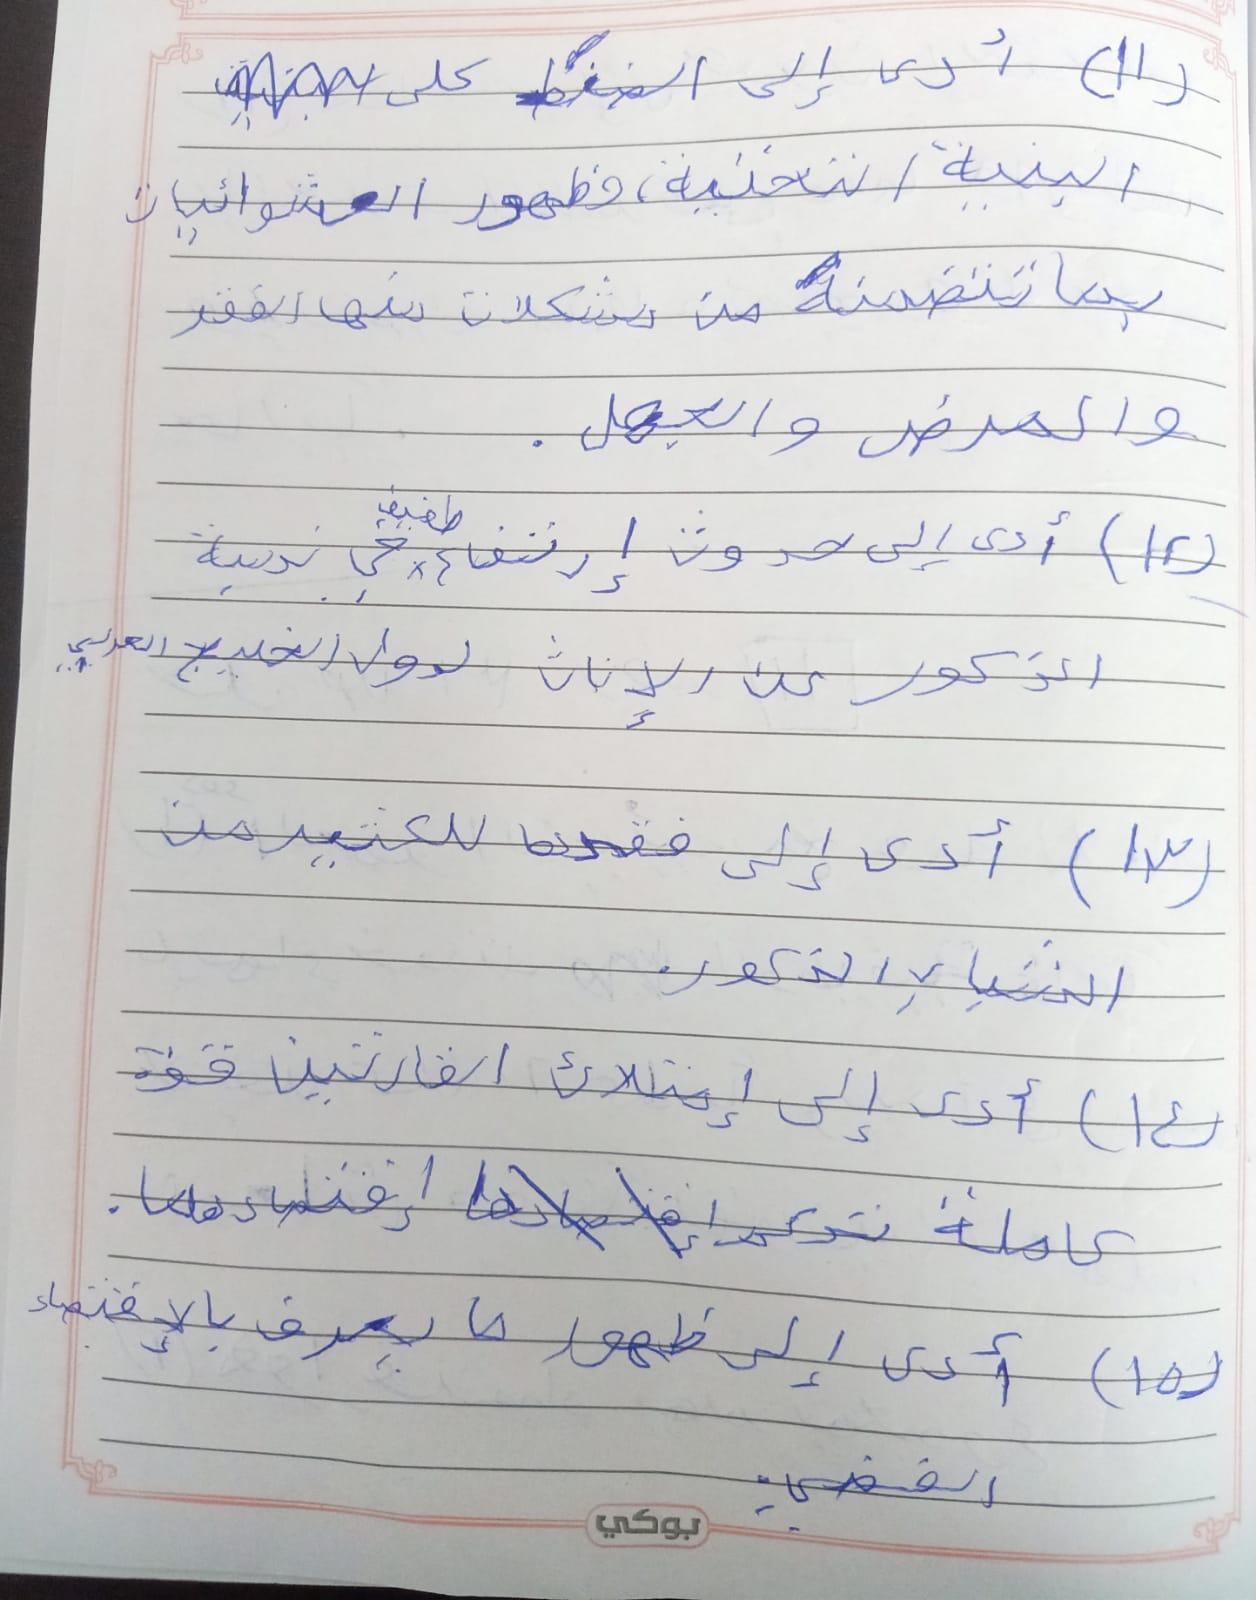 (١١) أدى إلى الضغط على
البنية التحتية، وظهور العشوائيات
بما تتضمنة من مشكلات منها الفقر
والمرض والجهل .
(١٢) أدى إلى حدوث إرتفاع طفيف في نسبة
الذكور عن الإناث لدول الخليج العربي
(١٣) أدى إلى فقدها للكثير من
الشباب الذكور.
(١٤) أدى إلى إمتلاك القارتين قوة
عاملة تدعم إقتصادهما .
(١٥) أدى إلى ظهور ما يعرف بالإقتصاد
الفضي .
بوكي